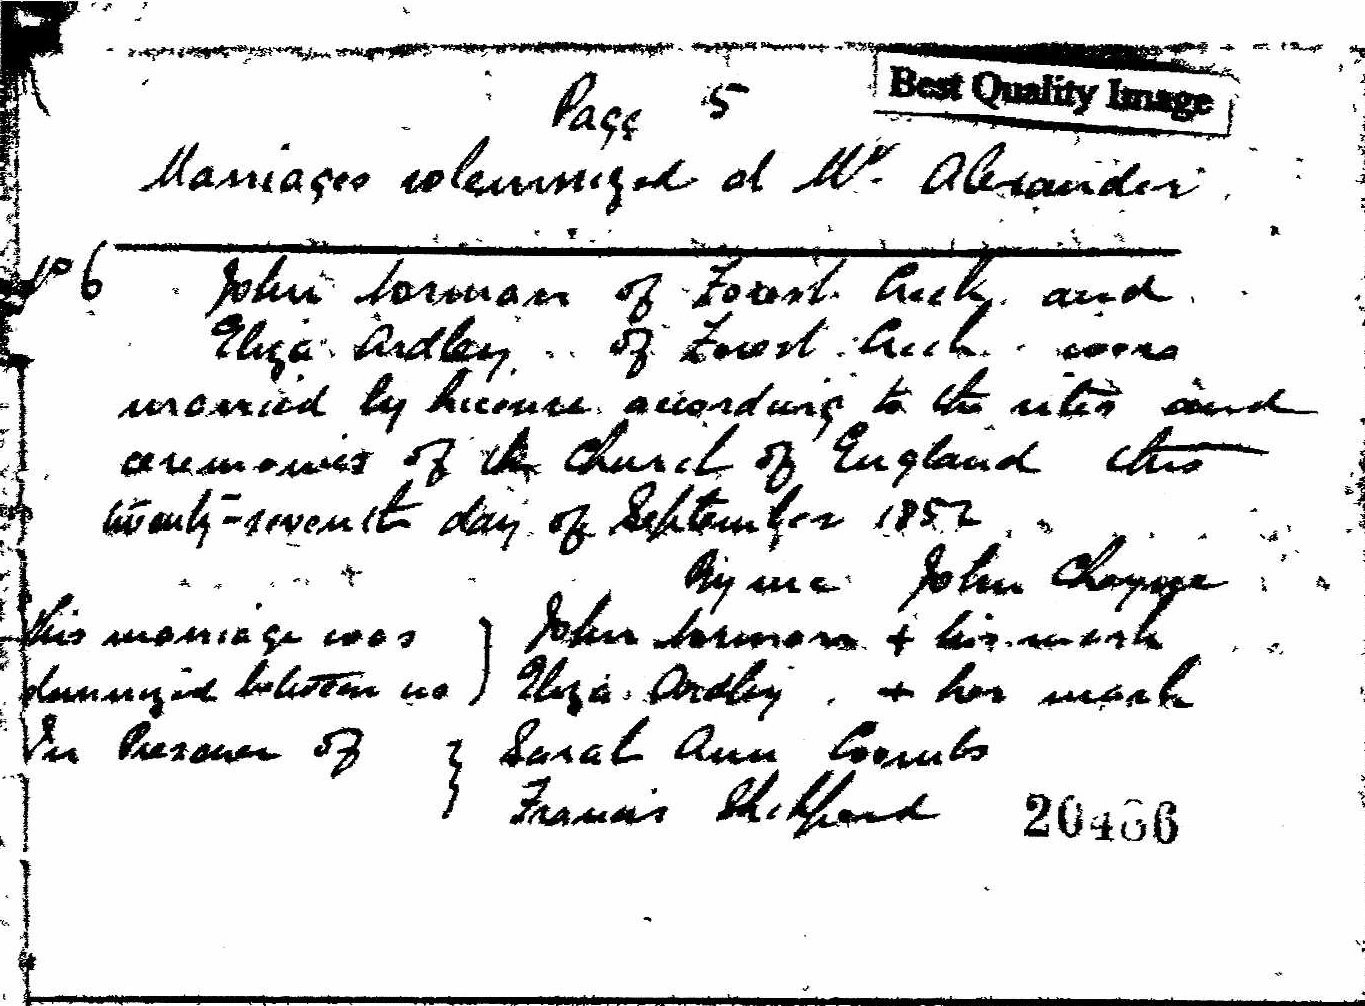 Page 5
Best Quality Image
Marriages solemnized at Mt. Alexander
No 6 John of Forest Creek and
Eliza Ardley of Forest Creek were
married by license according to the rites and
ceremonies of the Church of England this
twenty-seventh day of September 1852
By me John
This marriage was } John + his mark
solemnized between us } Eliza Ardley + her mark
In Presence of } Sarah Ann Coombs
Francis